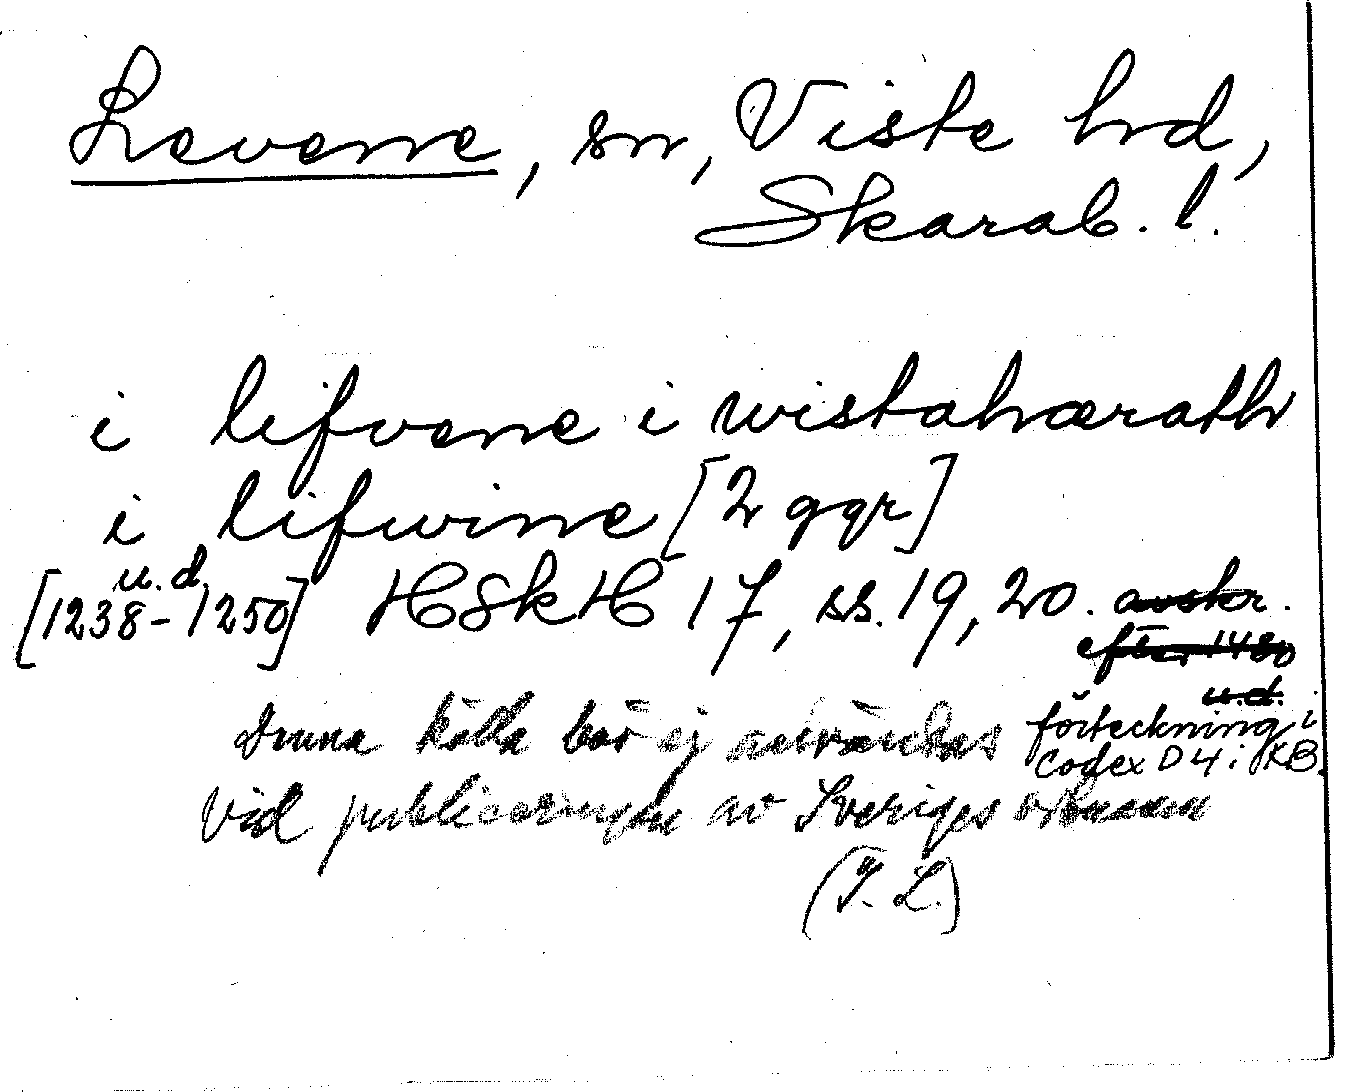 Levene, sn, Viste hrd,
Skarab. l.
i lifvene i wistahærath
i lifwine [2 ggr]
u.d.
[1238-1250] HSkH 17, ss. 19, 20. avskr.
efter 1480
u.d.
förteckning i
Codex D 4 i KB.
Denna källa bör ej användas
vid publiceringen av Sveriges ortnamn
(I. L.)